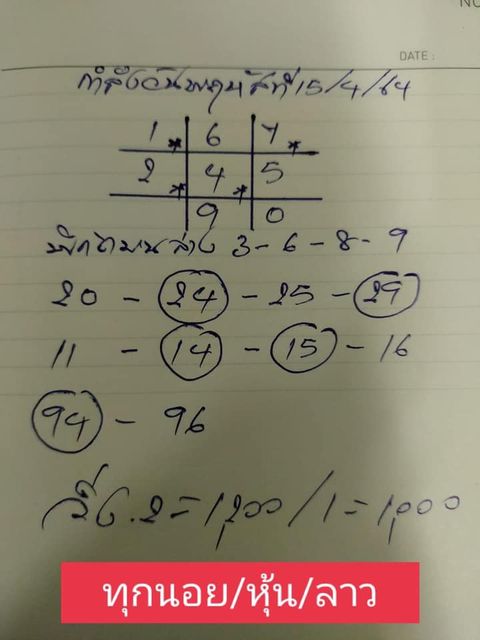 NO
DATE :
กำลังวันพฤหัสที่ 15/4/64
1 * 6 7 *
2 * 4 * 5
9 0
บน ล่าง 3 - 6 - 8 - 9
20 - 24 - 25 - 29
11 - 14 - 15 - 16
94 - 96
วิ่ง . 2 = 1,200 / 1 = 1,000
ทุกนอย/หุ้น/ลาว